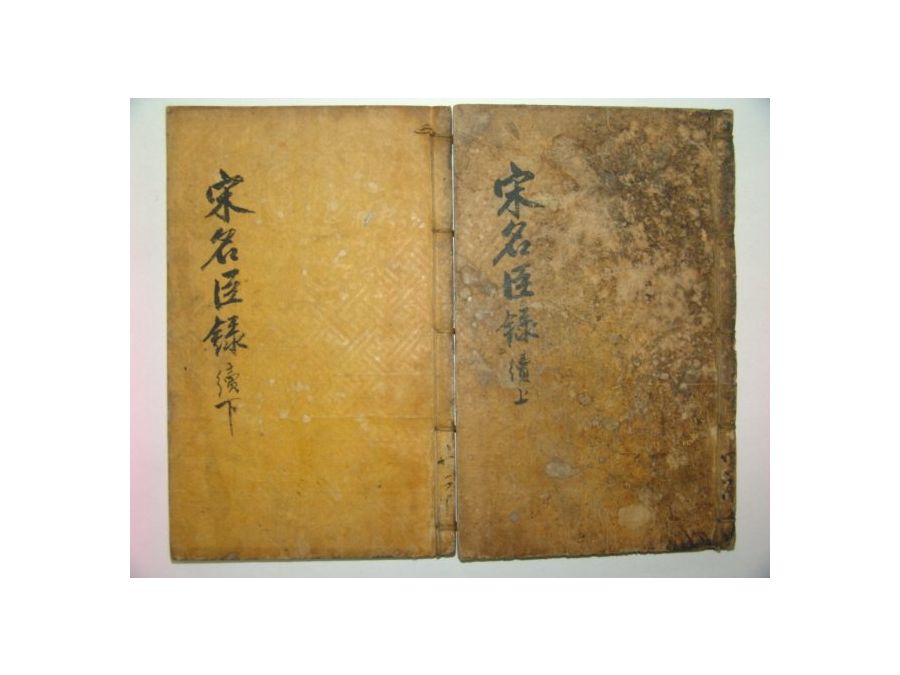 宋名臣錄 續上
宋名臣錄 續下